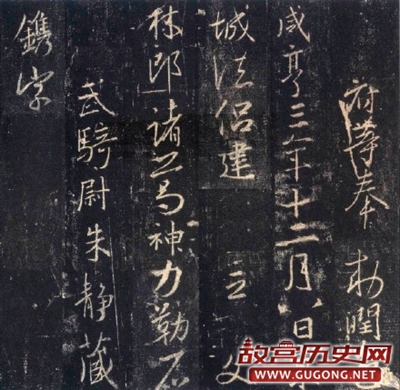 府等奉 敕潤
咸亨三年十二月八日
城法侶建 立 文
林郎諸葛神力勒石
武騎尉朱靜藏
鐫字
故宫历史网
WWW.GUGONG.NET